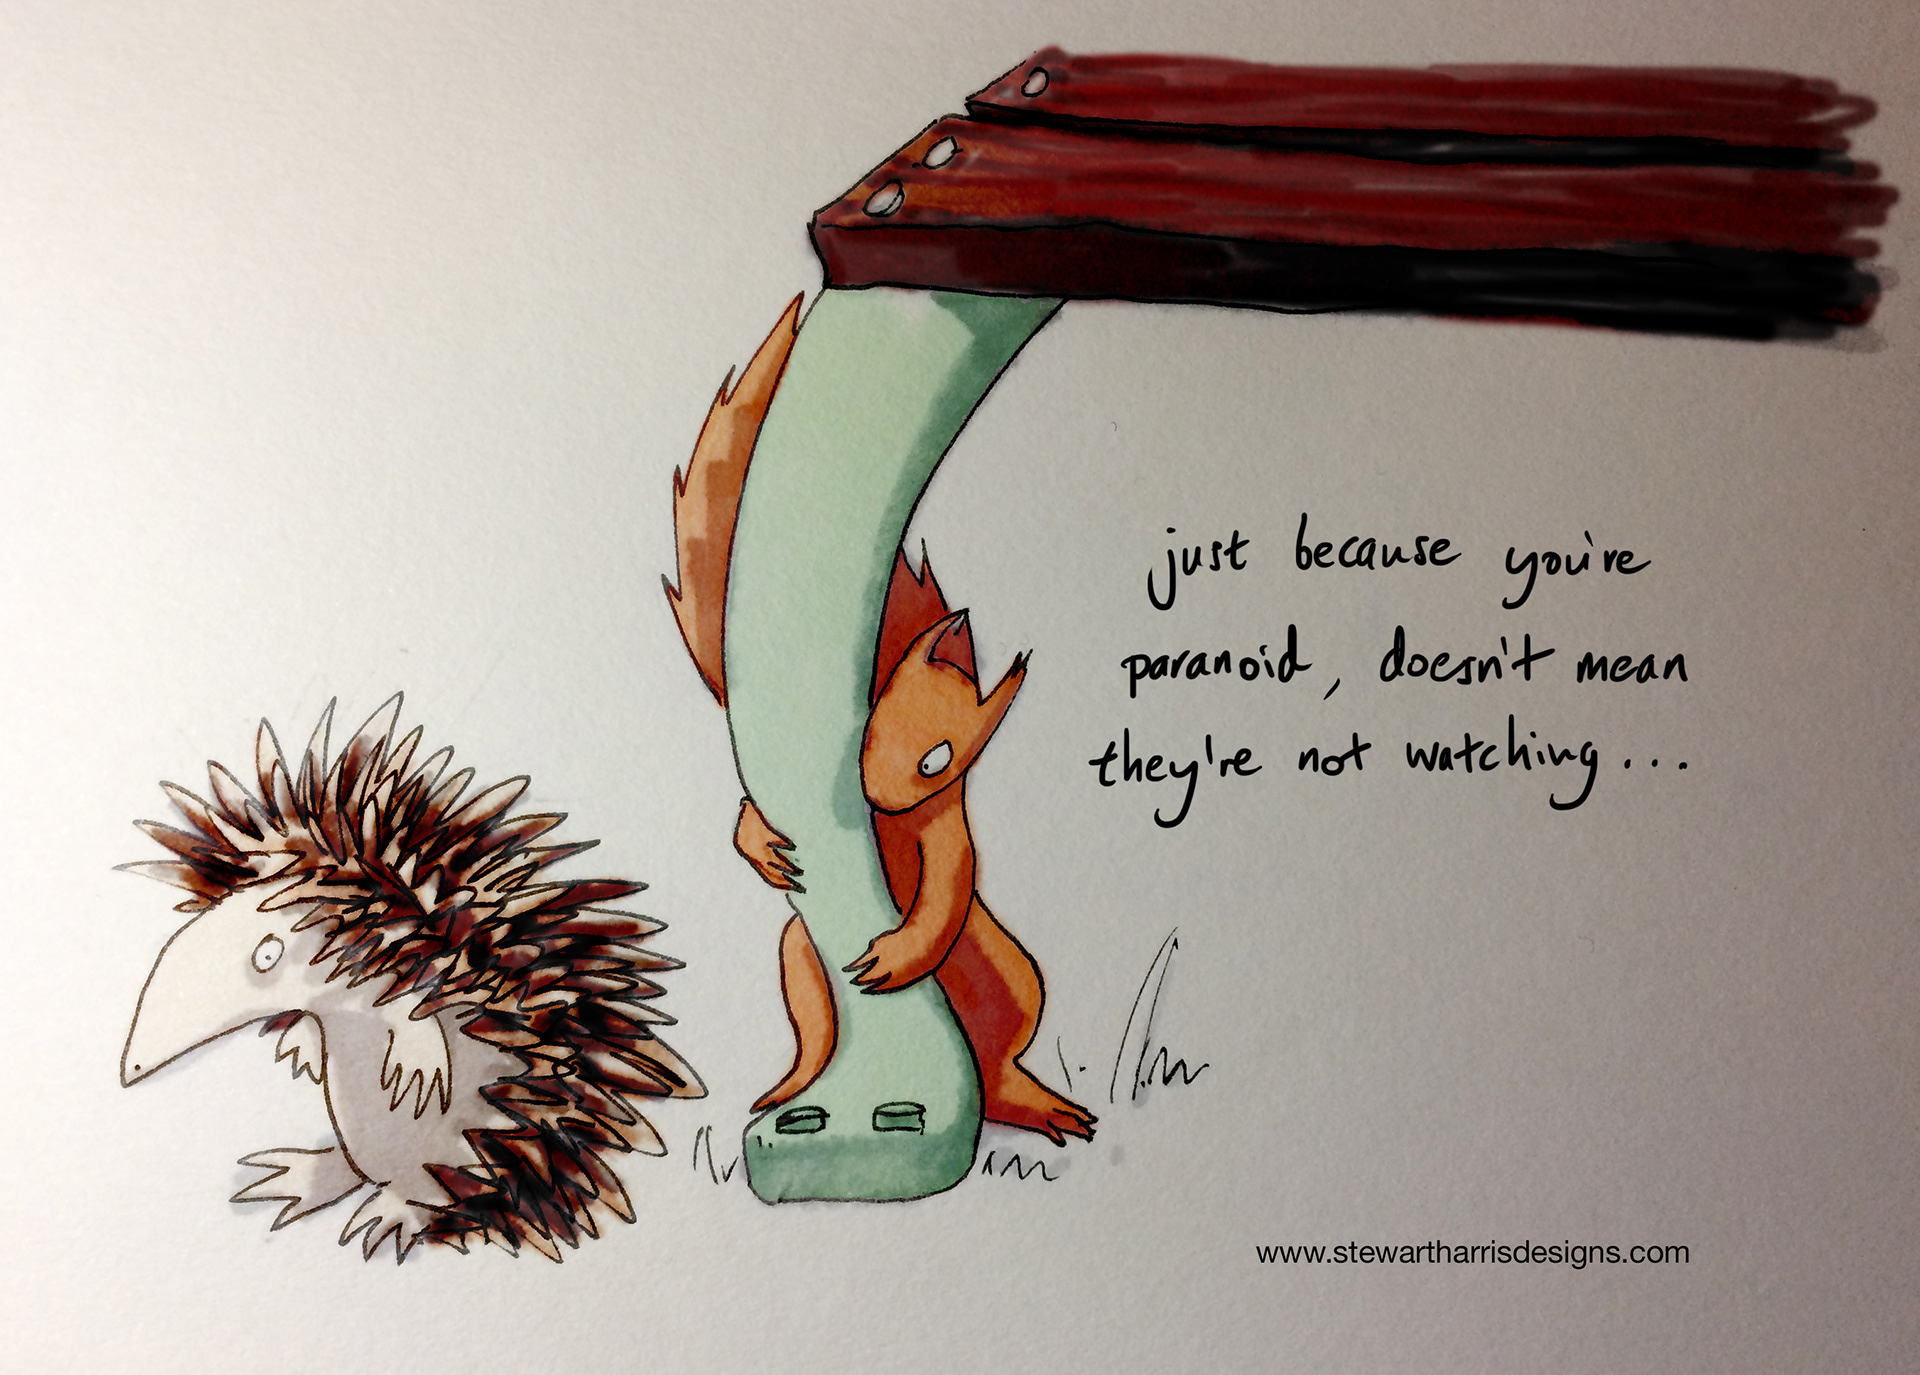 just because you're
paranoid, doesn't mean
they're not watching...
www.stewartharrisdesigns.com